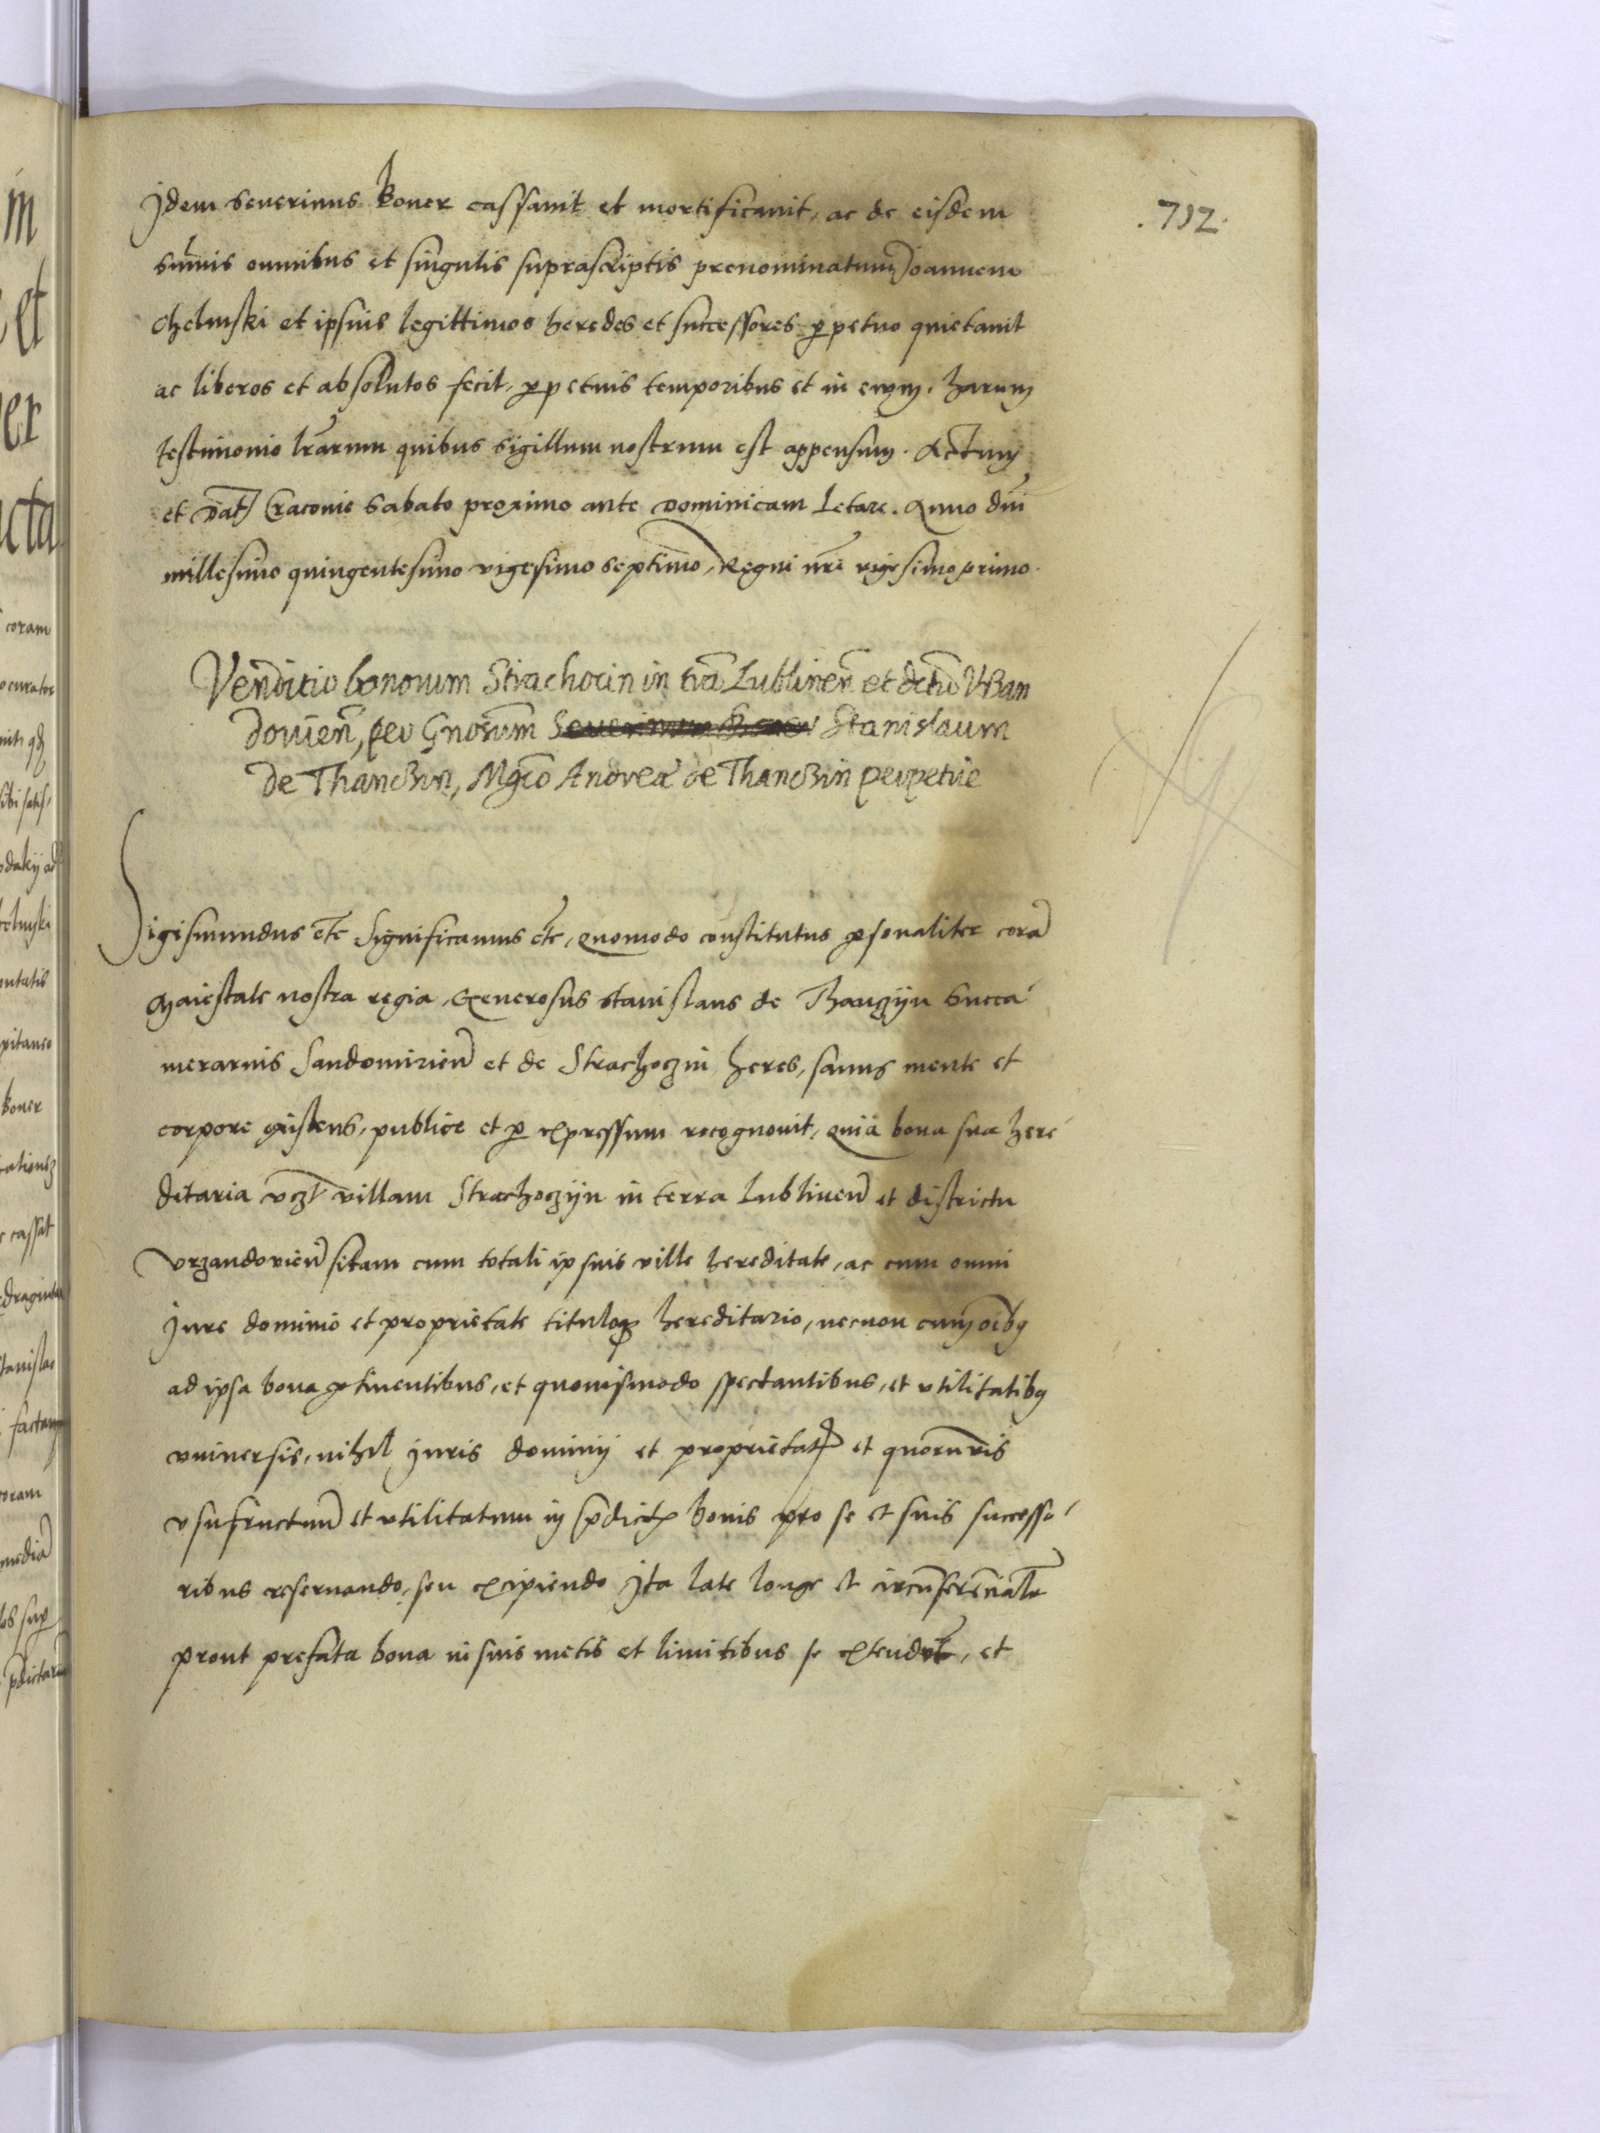 Idem Severinus boner cassavit et mortificavit, ac de eisdem
sum̃is omnibus et singulis suprascriptis prenominatum Joannem
Chelmski et ipsius legittimos heredes et successores perpetuo quietavit
ac liberos et absolutos fecit, perpetuis temporibus et in evum. harum
testimonio lrãrum quibus sigillum nostrum est appensum. Actum
et Dat Cracovie Sabato proximo ante Dominicam Letare. Anno dni
millesimo quingentesimo vigesimo septimo, Regni nri vigesimo primo.
.712.
Venditio bonorum Strachocin in trã Lublineñ et dctũ VrBan
dovieñ, per Gnosum Severinum Boner Stanislaum
de ThancBin, Mgco Andreæ de ThancBin perpetue
Sigismundus etc Significamus etc, quomodo constitutus personaliter corã
Maiestate nostra regia, Generosus Stanislaus de Thanczijn Succa-
merarius Sandomirieñ et de Strachoczin heres, sanus mente et
corpore existens, publice et per expressum recognovit, quia bona sua here-
ditaria vczt villam Strachoczijn in terra Lublineñ et districtu
vrzandovieñ sitam cum totali ipsius ville hereditate, ac cum omni
Jure dominio et proprietate tituloq hereditario, necnon cum oibq
ad ipsa bona pertinentibus, et quovismodo spectantibus, et utilitatibq
universis, nihil Juris dominij et proprietatis et quorumvis
usufructuũ et utilitatum in p̃dictis bonis pro se et suis successo-
ribus reservando, seu excipiendo Ita late longe et circũferẽncialr
prout prefata bona in suis metis et limitibus se extendũt, et